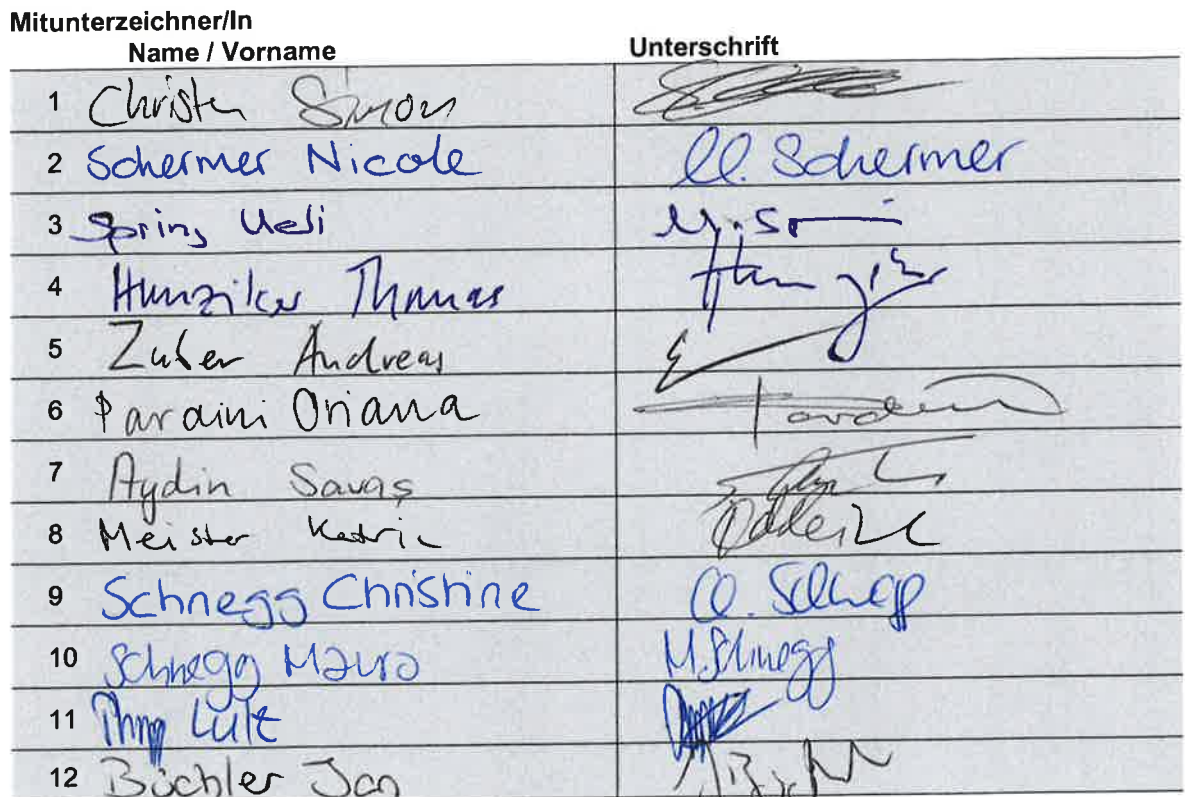 Mitunterzeichner/In
Name / Vorname Unterschrift
1 Christen Simon
2 Schermer Nicole N. Schermer
3 Spring Ueli U. Spring
4 Hunziker Thomas Hunziker
5 Zuber Andreas
6 Pardini Oriana Pardini
7 Aydin Savaş
8 Meister Katrin
9 Schnegg Christine C. Schnegg
10 Schnegg Mauro M. Schnegg
11 Lutz
12 Büchler Jan